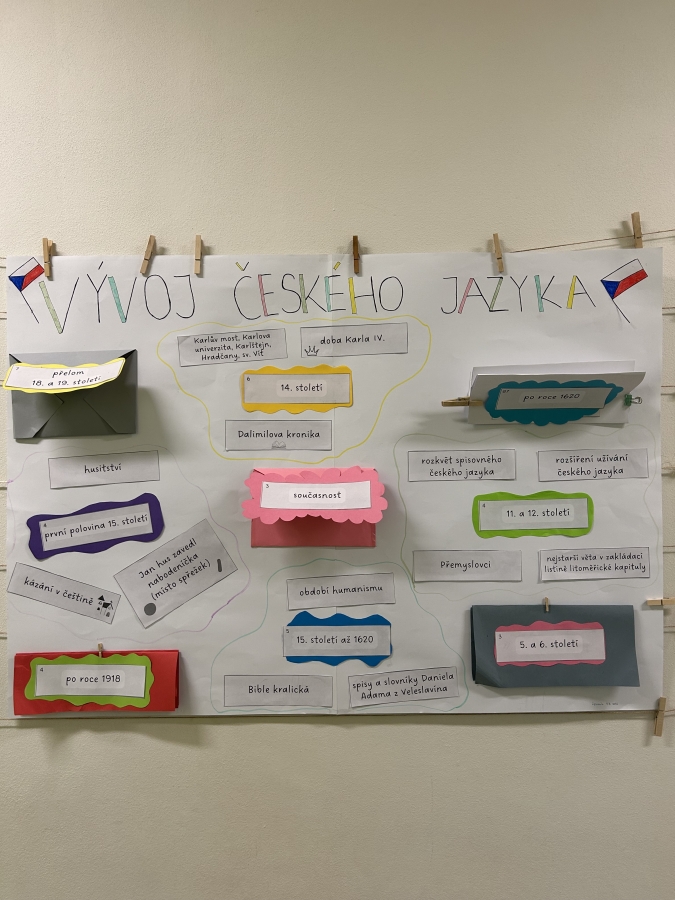 VÝVOJ ČESKÉHO JAZYKA
7
přelom
18. a 19. století
Karlův most, Karlova
univerzita, Karlštejn,
Hradčany, sv. Vít
doba Karla IV.
6
14. století
Dalimilova kronika
po roce 1620
husitství
4
první polovina 15. století
Jan hus zavedl
nabodeníčka
(místo spřežek)
kázání v češtině
3
současnost
rozkvět spisovného
českého jazyka
rozšíření užívání
českého jazyka
11. a 12. století
Přemyslovci
nejstarší věta v zakládací
listině litoměřické kapituly
období humanismu
5
15. století až 1620
Bible kralická
spisy a slovníky Daniela
Adama z Veleslavína
4
po roce 1918
5. a 6. století